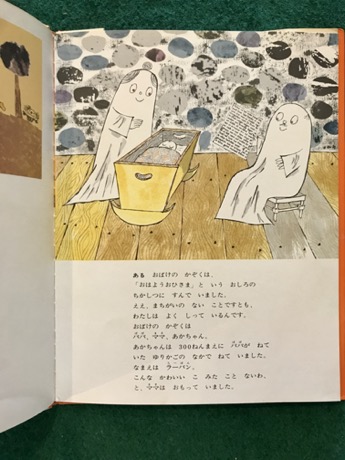 ある おばけの かぞくは、
「おはようおひさま」と いう おしろの
ちかしつに すんで いました。
ええ、まちがいの ない ことですとも、
わたしは よく しって いるんです。
おばけの かぞくは
パパ、ママ、あかちゃん。
あかちゃんは 300ねんまえに パパが ねて
いた ゆりかごの なかで ねて いました。
なまえは ラーバン。
こんな かわいい こ みた こと ないわ、
と、ママは おもって いました。